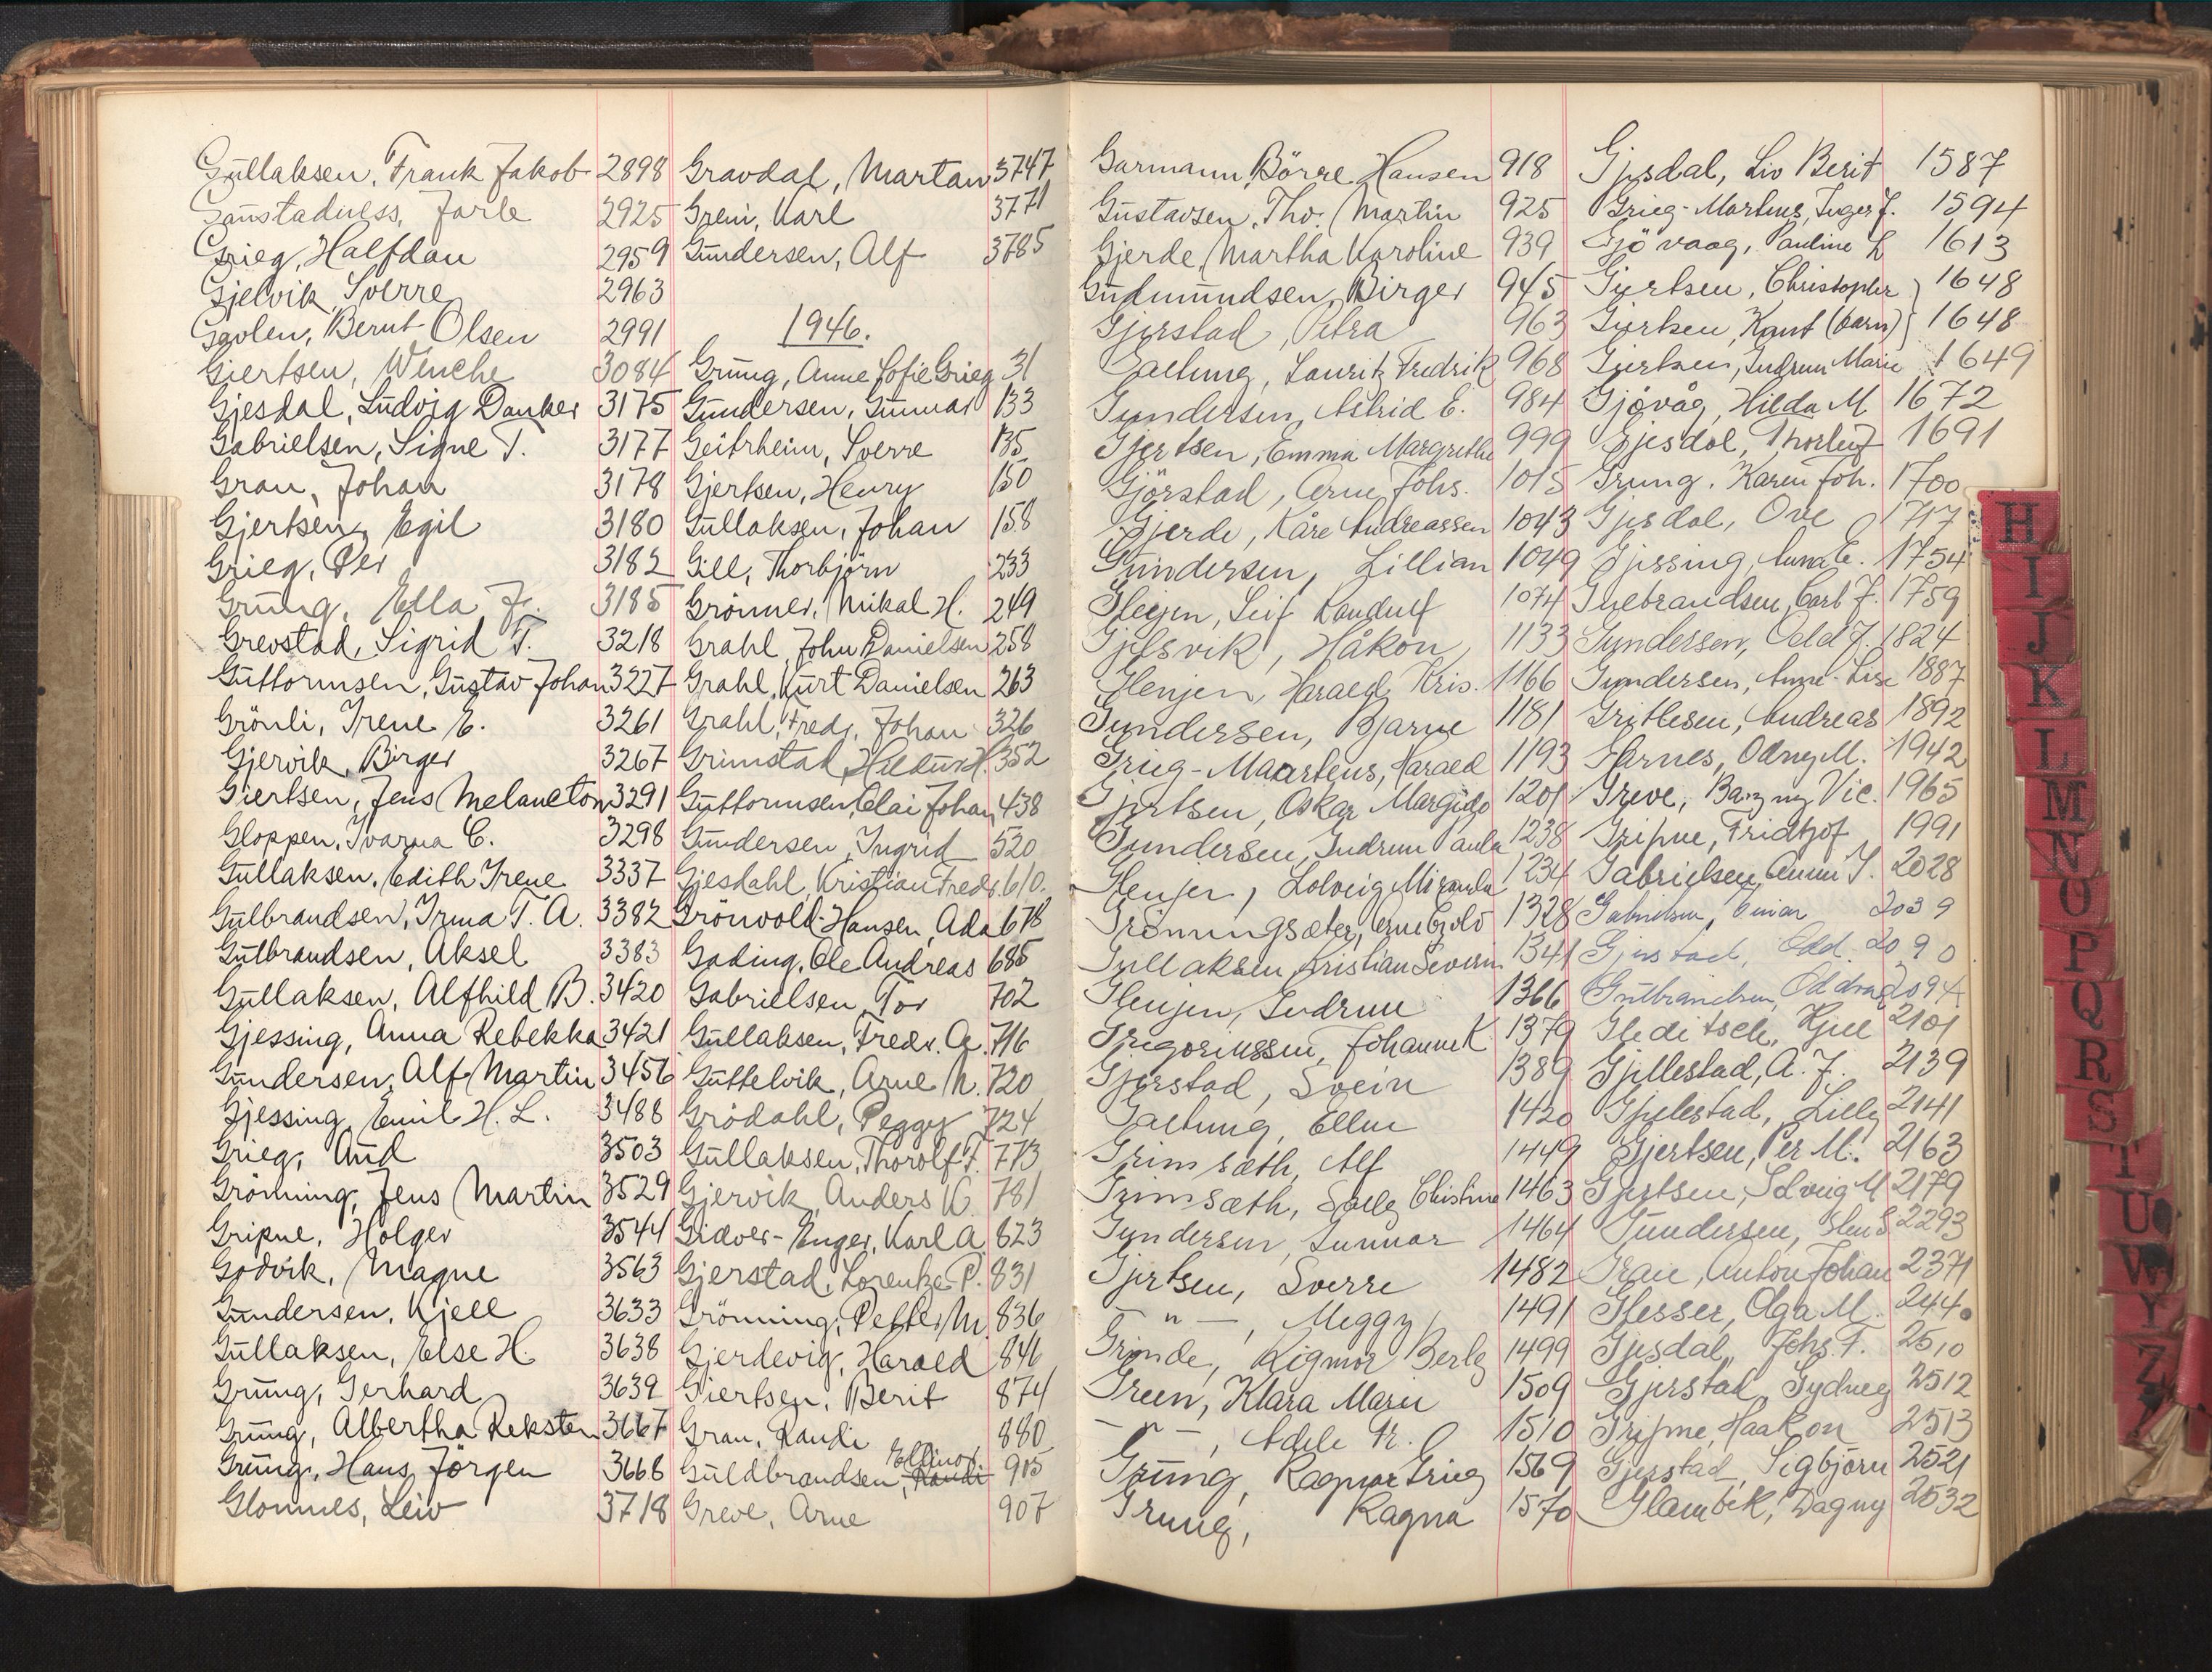 Gullaksen, Frank Jakob 2898
Gaustadness, Jarle 2925
Grieg, Halfdan 2959
Gjelvik, Sverre 2963
Gaolen, Bernt Olsen 2991
Giertsen, Wenche 3084
Gjesdal, Ludvig Danker 3175
Gabrielsen, Signe T. 3177
Gran, Johan 3178
Gjertsen, Egil 3180
Grieg, Per 3182
Grung, Ella J. 3185
Grevstad, Sigrid T. 3218
Guttormsen, Gustav Johan 3227
Grönli, Irene E. 3261
Gjervik, Birger 3267
Giertsen, Jens Melancton 3291
Gloppen, Ivarna C. 3298
Gullaksen, Edith Irene 3337
Gulbrandsen, Irma T. A. 3382
Gulbrandsen, Aksel 3383
Gullaksen, Alfhild B. 3420
Gjessing, Anna Rebekka 3421
Gundersen, Alf Martin 3456
Gjessing, Emil H. L. 3488
Grieg, Aud 3503
Grönning, Jens Martin 3529
Gripne, Holger 3544
Godvik, Magne 3563
Gundersen, Kjell 3633
Gullaksen, Else H. 3638
Grung, Gerhard 3639
Grung, Albertha Reksten 3667
Grung, Hans Jörgen 3668
Glomnes, Leiv 3718
Gravdal, Martan 3747
Grein, Karl 3771
Gundersen, Alf 3785
1946.
Grung, Anne Sofie Grieg 31
Gundersen, Gunnar 133
Geitrheim, Sverre 135
Gjertsen, Henry 150
Gullaksen, Johan 158
Gill, Thorbjörn 233
Grönner, Mikal H. 249
Grahl, John Danielsen 258
Grahl, Kurt Danielsen 263
Grahl, Fredr. Johan 326
Grimstad, Hildur H. 352
Guttormsen, Elai Johan 438
Gundersen, Ingrid 520
Gjesdahl, Kristian Fredr. 610.
Grönvold-Hansen, Ada 678
Gading, Ole Andreas 685
Gabrielsen, Tor 702
Gullaksen, Fredr. A. 716
Guttelvik, Arne N. 720
Grödahl, Peggy 724
Gullaksen, Thorolf F. 773
Gjervik, Anders K. 781
Gidver-Enger, Karl A. 823
Gjerstad, Lorentze P. 831
Grönning, Petter M. 836
Gjerdevig, Harald 846
Giertsen, Berit 874
Gran, Randi 880
Ellinor
Guldbrandsen, Randi 905
Greve, Arne 907
Garmann, Börre Hansen 918
Gustavsen, Tho. Martin 925
Gjerde, Martha Karoline 939
Gudmundsen, Birger 945
Gjerstad, Petra 963
Galtung, Lauritz Fredrik 968
Gundersen, Astrid E. 984
Gjertsen, Emma Margrethe 999
Gjörstad, Arne Johs. 1015
Gjerde, Kåre Andreassen 1043
Gundersen, Lillian 1049
Glenjen, Leif Landulf 1074
Gjelsvik, Håkon 1133
Glenjen, Harald Kris. 1166
Gundersen, Bjarne 1181
Grieg-Maartens, Harald 1193
Gjertsen, Oskar Margido 1201
Gundersen, Gudrun Paula 1238
Glenjen, Solveig Miranda 1234
Grönningsæter, Arne 1328
Gullaksen, Kristian Severin 1341
Glenjen, Gudrun 1366
Gregoriussen, Johanne K. 1379
Gjerstad, Svein 1389
Galtung, Ellen 1420
Grimsæth, Alf 1449
Grimsæth, Solly Christine 1463
Gundersen, Gunnar 1464
Gjertsen, Sverre 1482
— " —, Meggy 1491
Grinde, Rigmor Berly 1499
Green, Klara Marie 1509
— " —, Adele Kr. 1510
Grung, Ragnar Grieg 1569
Grung, Ragna 1570
Gjesdal, Liv Berit 1587
Grieg-Martens, Inger J. 1594
Gjövaag, Pauline L 1613
Gjertsen, Christopher } 1648
Gjertsen, Knut (barn) } 1648
Gjertsen, Gudrun Marie 1649
Gjövåg, Hilda M 1672
Gjesdal, Thorleif 1691
Grung, Karen Joh. 1700
Gjesdal, Ove 1717
Gjessing, Anna E. 1754
Guebrandsen, Carl J. 1759
Gundersen, Odd J. 1824
Gundersen, Anne-Lise 1887
Gritlesen, Andreas 1892
Garnes, Odny M. 1942
Greve, Vic. 1965
Gripne, Fridtjof 1991
Gabrielsen, Anna I. 2028
Gabrielsen, Einar 2039
Gjerstad, Odd 2090
Gulbrandsen, Oddvar 2094
Gleditsch, Kjell 2101
Gjellestad, A. J. 2139
Gjellestad, Lilly 2141
Gjertsen, Per M. 2163
Gjertsen, Solveig M 2179
Gundersen, S 2293
Gran, Anton Johan 2371
Glesser, Olga M. 2440
Gjesdal, Johs. F. 2510
Gjerstad, Sydney 2512
Gripne, Haakon 2513
Gjerstad, Sigbjörn 2521
Glambek, Dagny 2532
H
I
J
K
L
M
N
O
P
Q
R
S
T
U
W
Y
Z